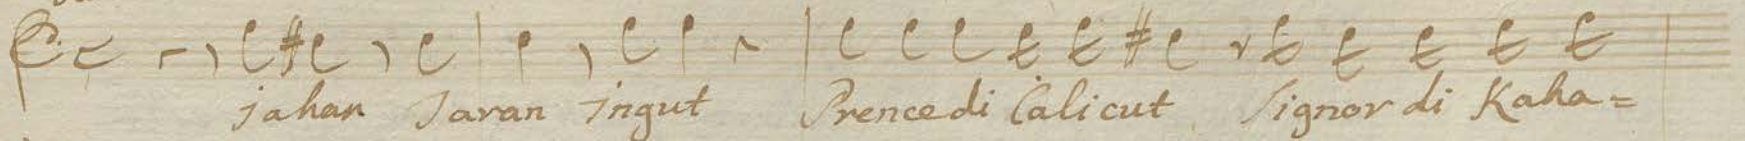 Jahan Taran Ingut Prence di Calicut Signor di Kaha=